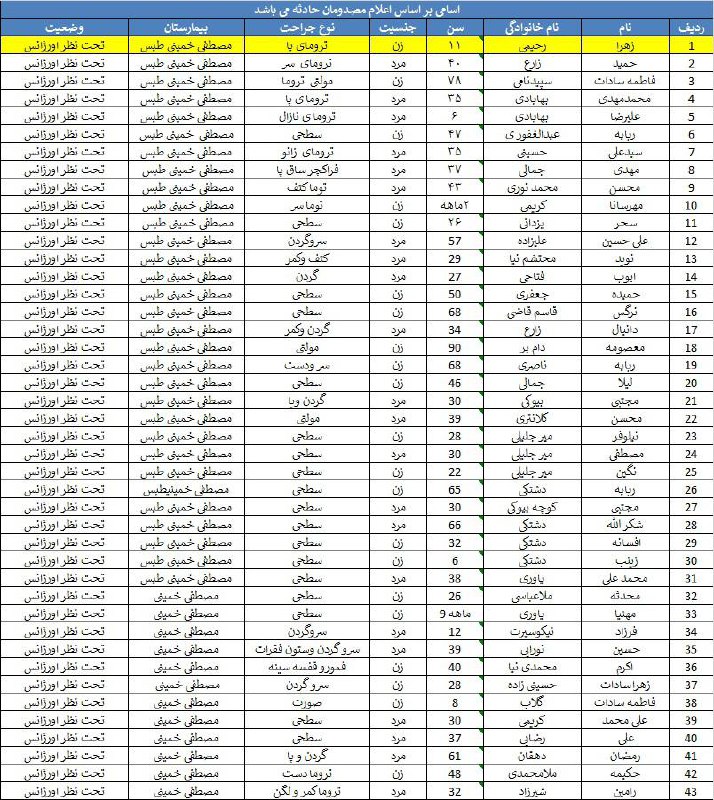 اسامی بر اساس اعلام مصدومان حادثه می باشد
ردیف نام نام خانوادگی سن جنسیت نوع جراحت بیمارستان وضعیت
1 زهرا رحیمی ۱۱ زن ترومای پا مصطفی خمینی طبس تحت نظر اورژانس
2 حمید زارع ۴۰ مرد ترومای سر مصطفی خمینی طبس تحت نظر اورژانس
3 فاطمه سادات سپیدنامی ۷۸ زن مولتی تروما مصطفی خمینی طبس تحت نظر اورژانس
4 محمدمهدی بهابادی ۳۵ مرد ترومای پا مصطفی خمینی طبس تحت نظر اورژانس
5 علیرضا بهابادی ۶ مرد ترومای نازال مصطفی خمینی طبس تحت نظر اورژانس
6 ربابه عبدالغفوری ۴۷ زن سطحی مصطفی خمینی طبس تحت نظر اورژانس
7 سیدعلی حسینی ۳۵ مرد ترومای زانو مصطفی خمینی طبس تحت نظر اورژانس
8 مهدی جمالی ۳۷ مرد فراکچر ساق پا مصطفی خمینی طبس تحت نظر اورژانس
9 محسن محمد نوری ۴۳ مرد توما کتف مصطفی خمینی طبس تحت نظر اورژانس
10 مهرسانا کریمی ۲ماهه زن توما سر مصطفی خمینی طبس تحت نظر اورژانس
11 سحر یزدانی ۲۶ زن سطحی مصطفی خمینی طبس تحت نظر اورژانس
12 علی حسین علیزاده 57 مرد سروگردن مصطفی خمینی طبس تحت نظر اورژانس
13 نوید محتشم نیا 29 مرد کتف وکمر مصطفی خمینی طبس تحت نظر اورژانس
14 ایوب فتاحی 27 مرد گردن مصطفی خمینی طبس تحت نظر اورژانس
15 حمیده جعفری 50 زن سطحی مصطفی خمینی طبس تحت نظر اورژانس
16 نرگس قاسم قاضی 68 زن سطحی مصطفی خمینی طبس تحت نظر اورژانس
17 دانیال زارع 34 مرد گردن وکمر مصطفی خمینی طبس تحت نظر اورژانس
18 معصومه دام بر 90 زن مولتی مصطفی خمینی طبس تحت نظر اورژانس
19 ربابه ناصری 68 زن سرودست مصطفی خمینی طبس تحت نظر اورژانس
20 لیلا جمالی 46 زن سطحی مصطفی خمینی طبس تحت نظر اورژانس
21 مجتبی بیوکی 30 مرد گردن وپا مصطفی خمینی طبس تحت نظر اورژانس
22 محسن کلانتری 39 مرد مولتی مصطفی خمینی طبس تحت نظر اورژانس
23 نیلوفر میر جلیلی 28 زن سطحی مصطفی خمینی طبس تحت نظر اورژانس
24 مصطفی میر جلیلی 30 مرد سطحی مصطفی خمینی طبس تحت نظر اورژانس
25 نگین میر جلیلی 22 زن سطحی مصطفی خمینی طبس تحت نظر اورژانس
26 ربابه دشتکی 65 زن سطحی مصطفی خمینیطبس تحت نظر اورژانس
27 مجتبی کوچه بیوکی 30 مرد سطحی مصطفی خمینی طبس تحت نظر اورژانس
28 شکر الله دشتکی 66 مرد سطحی مصطفی خمینی طبس تحت نظر اورژانس
29 افسانه دشتکی 32 زن سطحی مصطفی خمینی طبس تحت نظر اورژانس
30 زینب دشتکی 6 زن سطحی مصطفی خمینی طبس تحت نظر اورژانس
31 محمد علی یاوری 38 مرد سطحی مصطفی خمینی طبس تحت نظر اورژانس
32 محدثه ملاعباسی 26 زن سطحی مصطفی خمینی تحت نظر اورژانس
33 مهنیا یاوری 9 ماهه زن سطحی مصطفی خمینی تحت نظر اورژانس
34 فرزاد نیکوسیرت 12 مرد سروگردن مصطفی خمینی تحت نظر اورژانس
35 حسین نورابی 39 مرد سر و گردن وستون فقرات مصطفی خمینی تحت نظر اورژانس
36 اکرم محمدی نیا 40 زن فمور و قفسه سینه مصطفی خمینی تحت نظر اورژانس
37 زهرا سادات حسینی زاده 28 زن سر و گردن مصطفی خمینی تحت نظر اورژانس
38 فاطمه سادات گلاب 8 زن صورت مصطفی خمینی تحت نظر اورژانس
39 علی محمد کریمی 30 مرد سطحی مصطفی خمینی تحت نظر اورژانس
40 علی رضایی 37 مرد سطحی مصطفی خمینی تحت نظر اورژانس
41 رمضان دهقان 61 مرد گردن و پا مصطفی خمینی تحت نظر اورژانس
42 حکیمه ملامحمدی 48 زن تروما دست مصطفی خمینی تحت نظر اورژانس
43 رامین شیرزاد 32 مرد تروما کمر و لگن مصطفی خمینی تحت نظر اورژانس